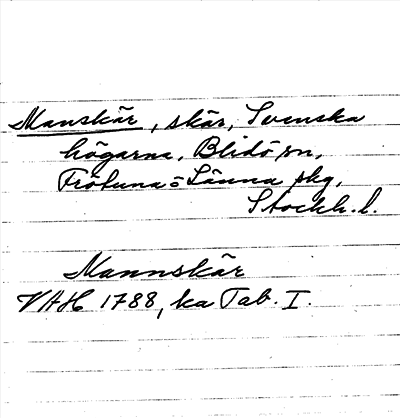 Manskär, skär, Svenska
högarna, Blidö sn,
Frötuna o Länna skg,
Stockh. l.
Mannskär
VAH 1788, ka Tab. I.